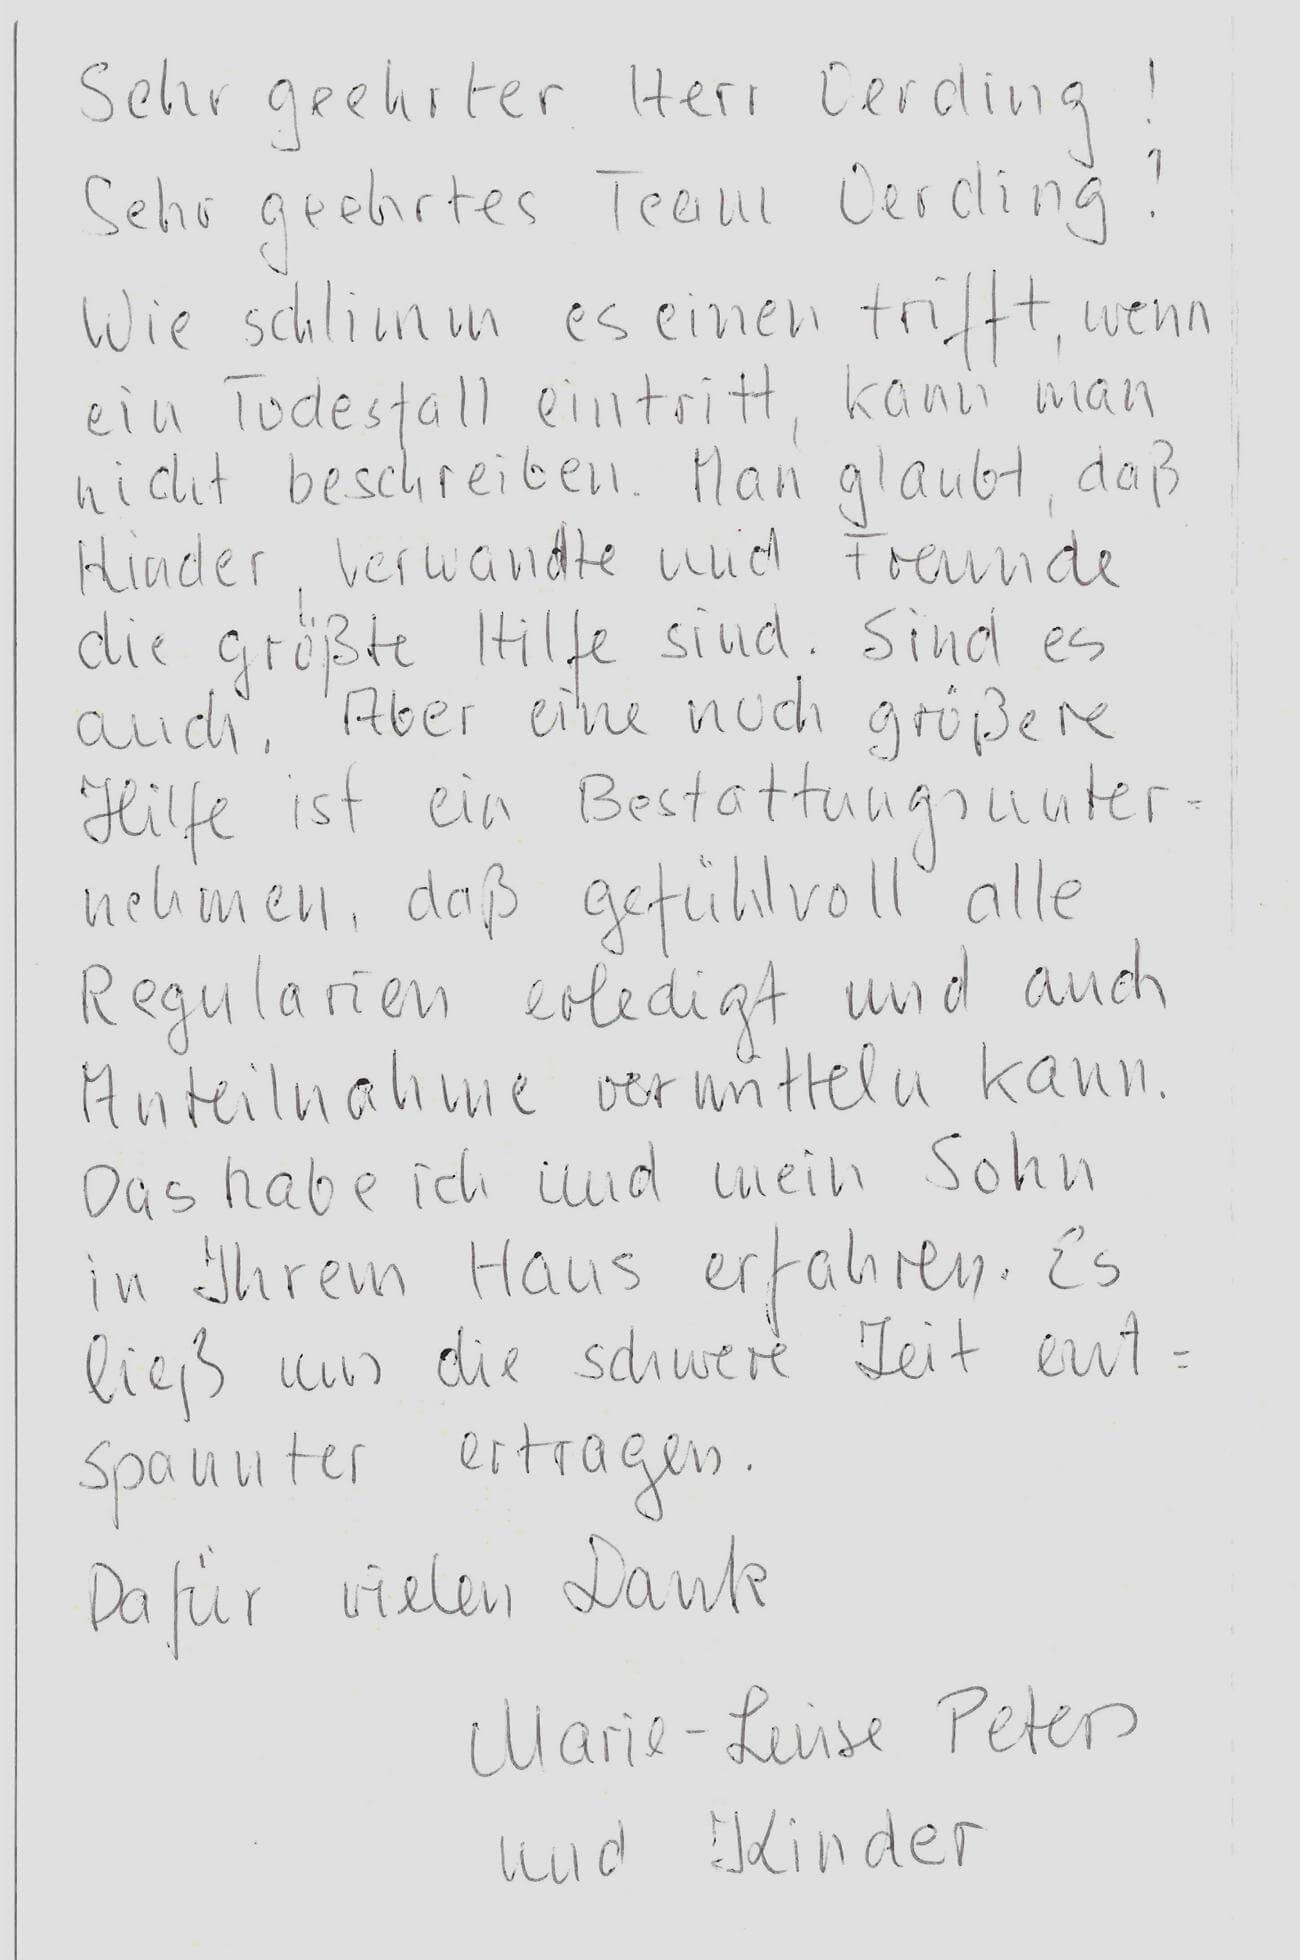 Sehr geehrter Herr Oerding!
Sehr geehrtes Team Oerding!
Wie schlimm es einen trifft, wenn
ein Todesfall eintritt, kann man
nicht beschreiben. Man glaubt, daß
Kinder, Verwandte und Freunde
die größte Hilfe sind. Sind es
auch. Aber eine noch größere
Hilfe ist ein Bestattungsunter=
nehmen, daß gefühlvoll alle
Regularien erledigt und auch
Anteilnahme vermitteln kann.
Das habe ich und mein Sohn
in Ihrem Haus erfahren. Es
ließ uns die schwere Zeit ent=
spannter ertragen.
Dafür vielen Dank
Marie-Luise Peters
und Kinder